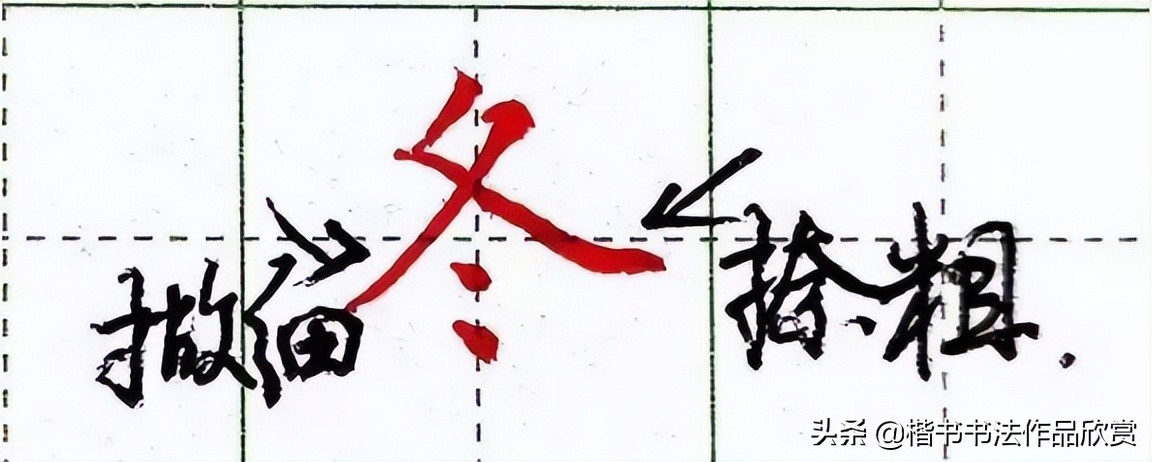 冬
撇细
捺粗.
头条 @楷书书法作品欣赏